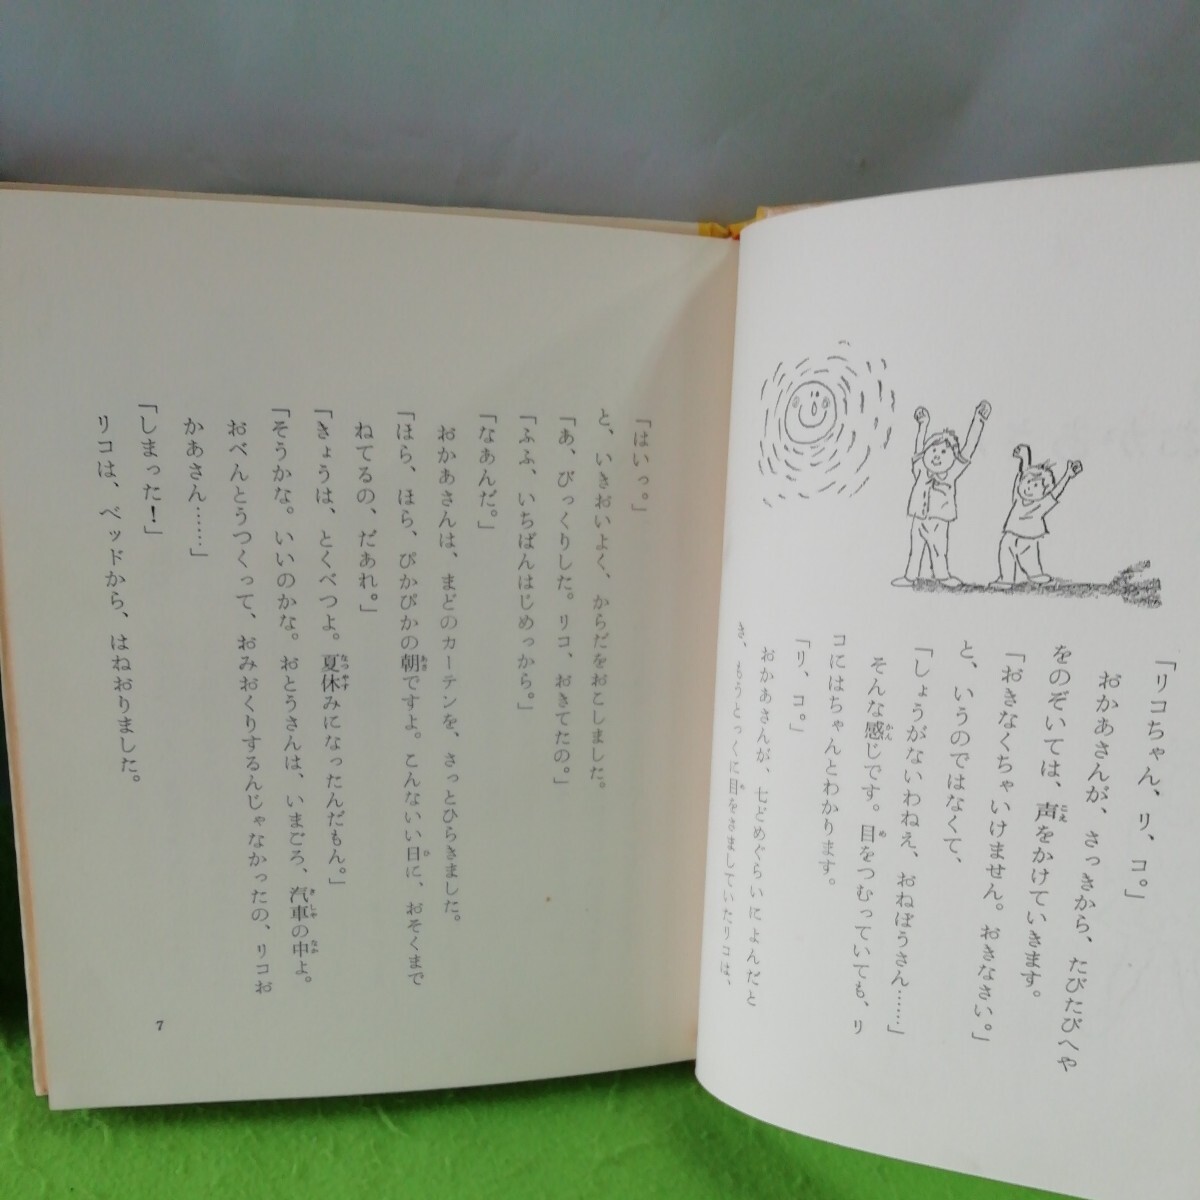 「リコちゃん、リ、コ。」
おかあさんが、さっきから、たびたびへや
をのぞいては、声をかけていきます。
「おきなくちゃいけません。おきなさい。」
と、いうのではなくて、
「しょうがないわねえ、おねぼうさん……」
そんな感じです。目をつむっていても、リ
コにはちゃんとわかります。
「リ、コ。」
おかあさんが、七どめぐらいによんだと
き、もうとっくに目をさましていたリコは、
「はいっ。」
と、いきおいよく、からだをおこしました。
「あ、びっくりした。リコ、おきてたの。」
「ふふ、いちばんはじめっから。」
「なあんだ。」
おかあさんは、まどのカーテンを、さっとひらきました。
「ほら、ほら、ぴかぴかの朝ですよ。こんないい日に、おそくまで
ねてるの、だあれ。」
「きょうは、とくべつよ。夏休みになったんだもん。」
「そうかな。いいのかな。おとうさんは、いまごろ、汽車の中よ。
おべんとうつくって、おみおくりするんじゃなかったの、リコお
かあさん……」
「しまった！」
リコは、ベッドから、はねおりました。
7